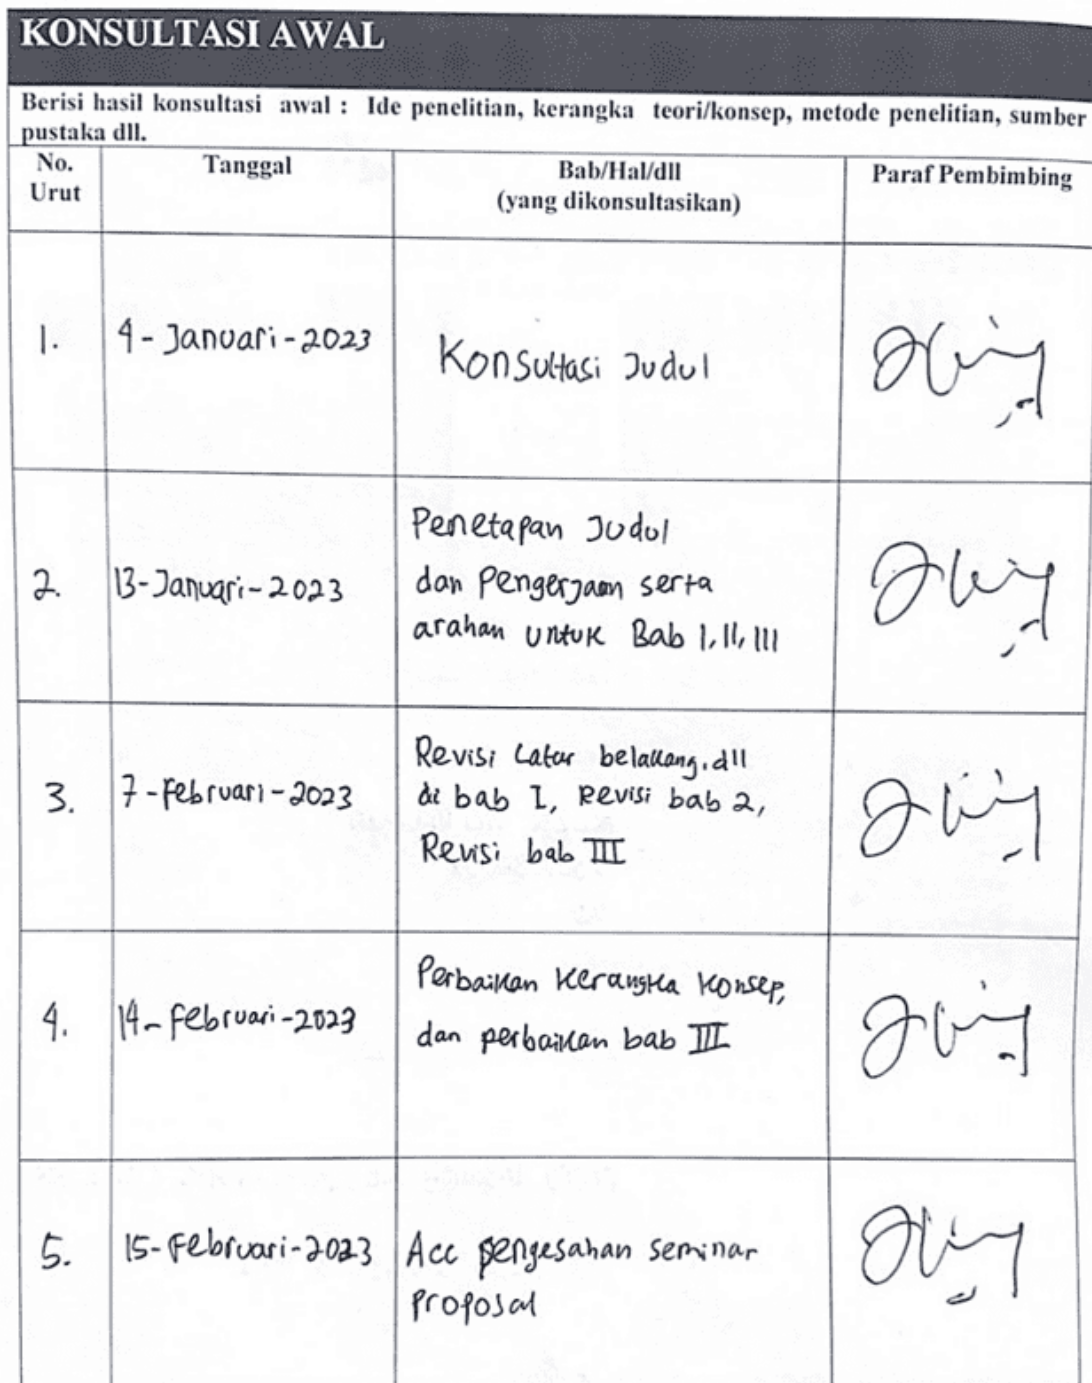 KONSULTASI AWAL
Berisi hasil konsultasi awal : Ide penelitian, kerangka teori/konsep, metode penelitian, sumber
pustaka dll.
No. Urut
Tanggal
Bab/Hal/dll
(yang dikonsultasikan)
Paraf Pembimbing
1.
4-Januari-2023
Konsultasi Judul
2.
13-Januari-2023
Penetapan Judul
dan Pengerjaan serta
arahan untuk Bab I, II, III
3.
7-Februari-2023
Revisi Latar belakang, dll
di bab I, Revisi bab 2,
Revisi bab III
4.
14-Februari-2023
Perbaikan Kerangka Konsep,
dan perbaikan bab III
5.
15-Februari-2023
Acc pengesahan seminar
proposal